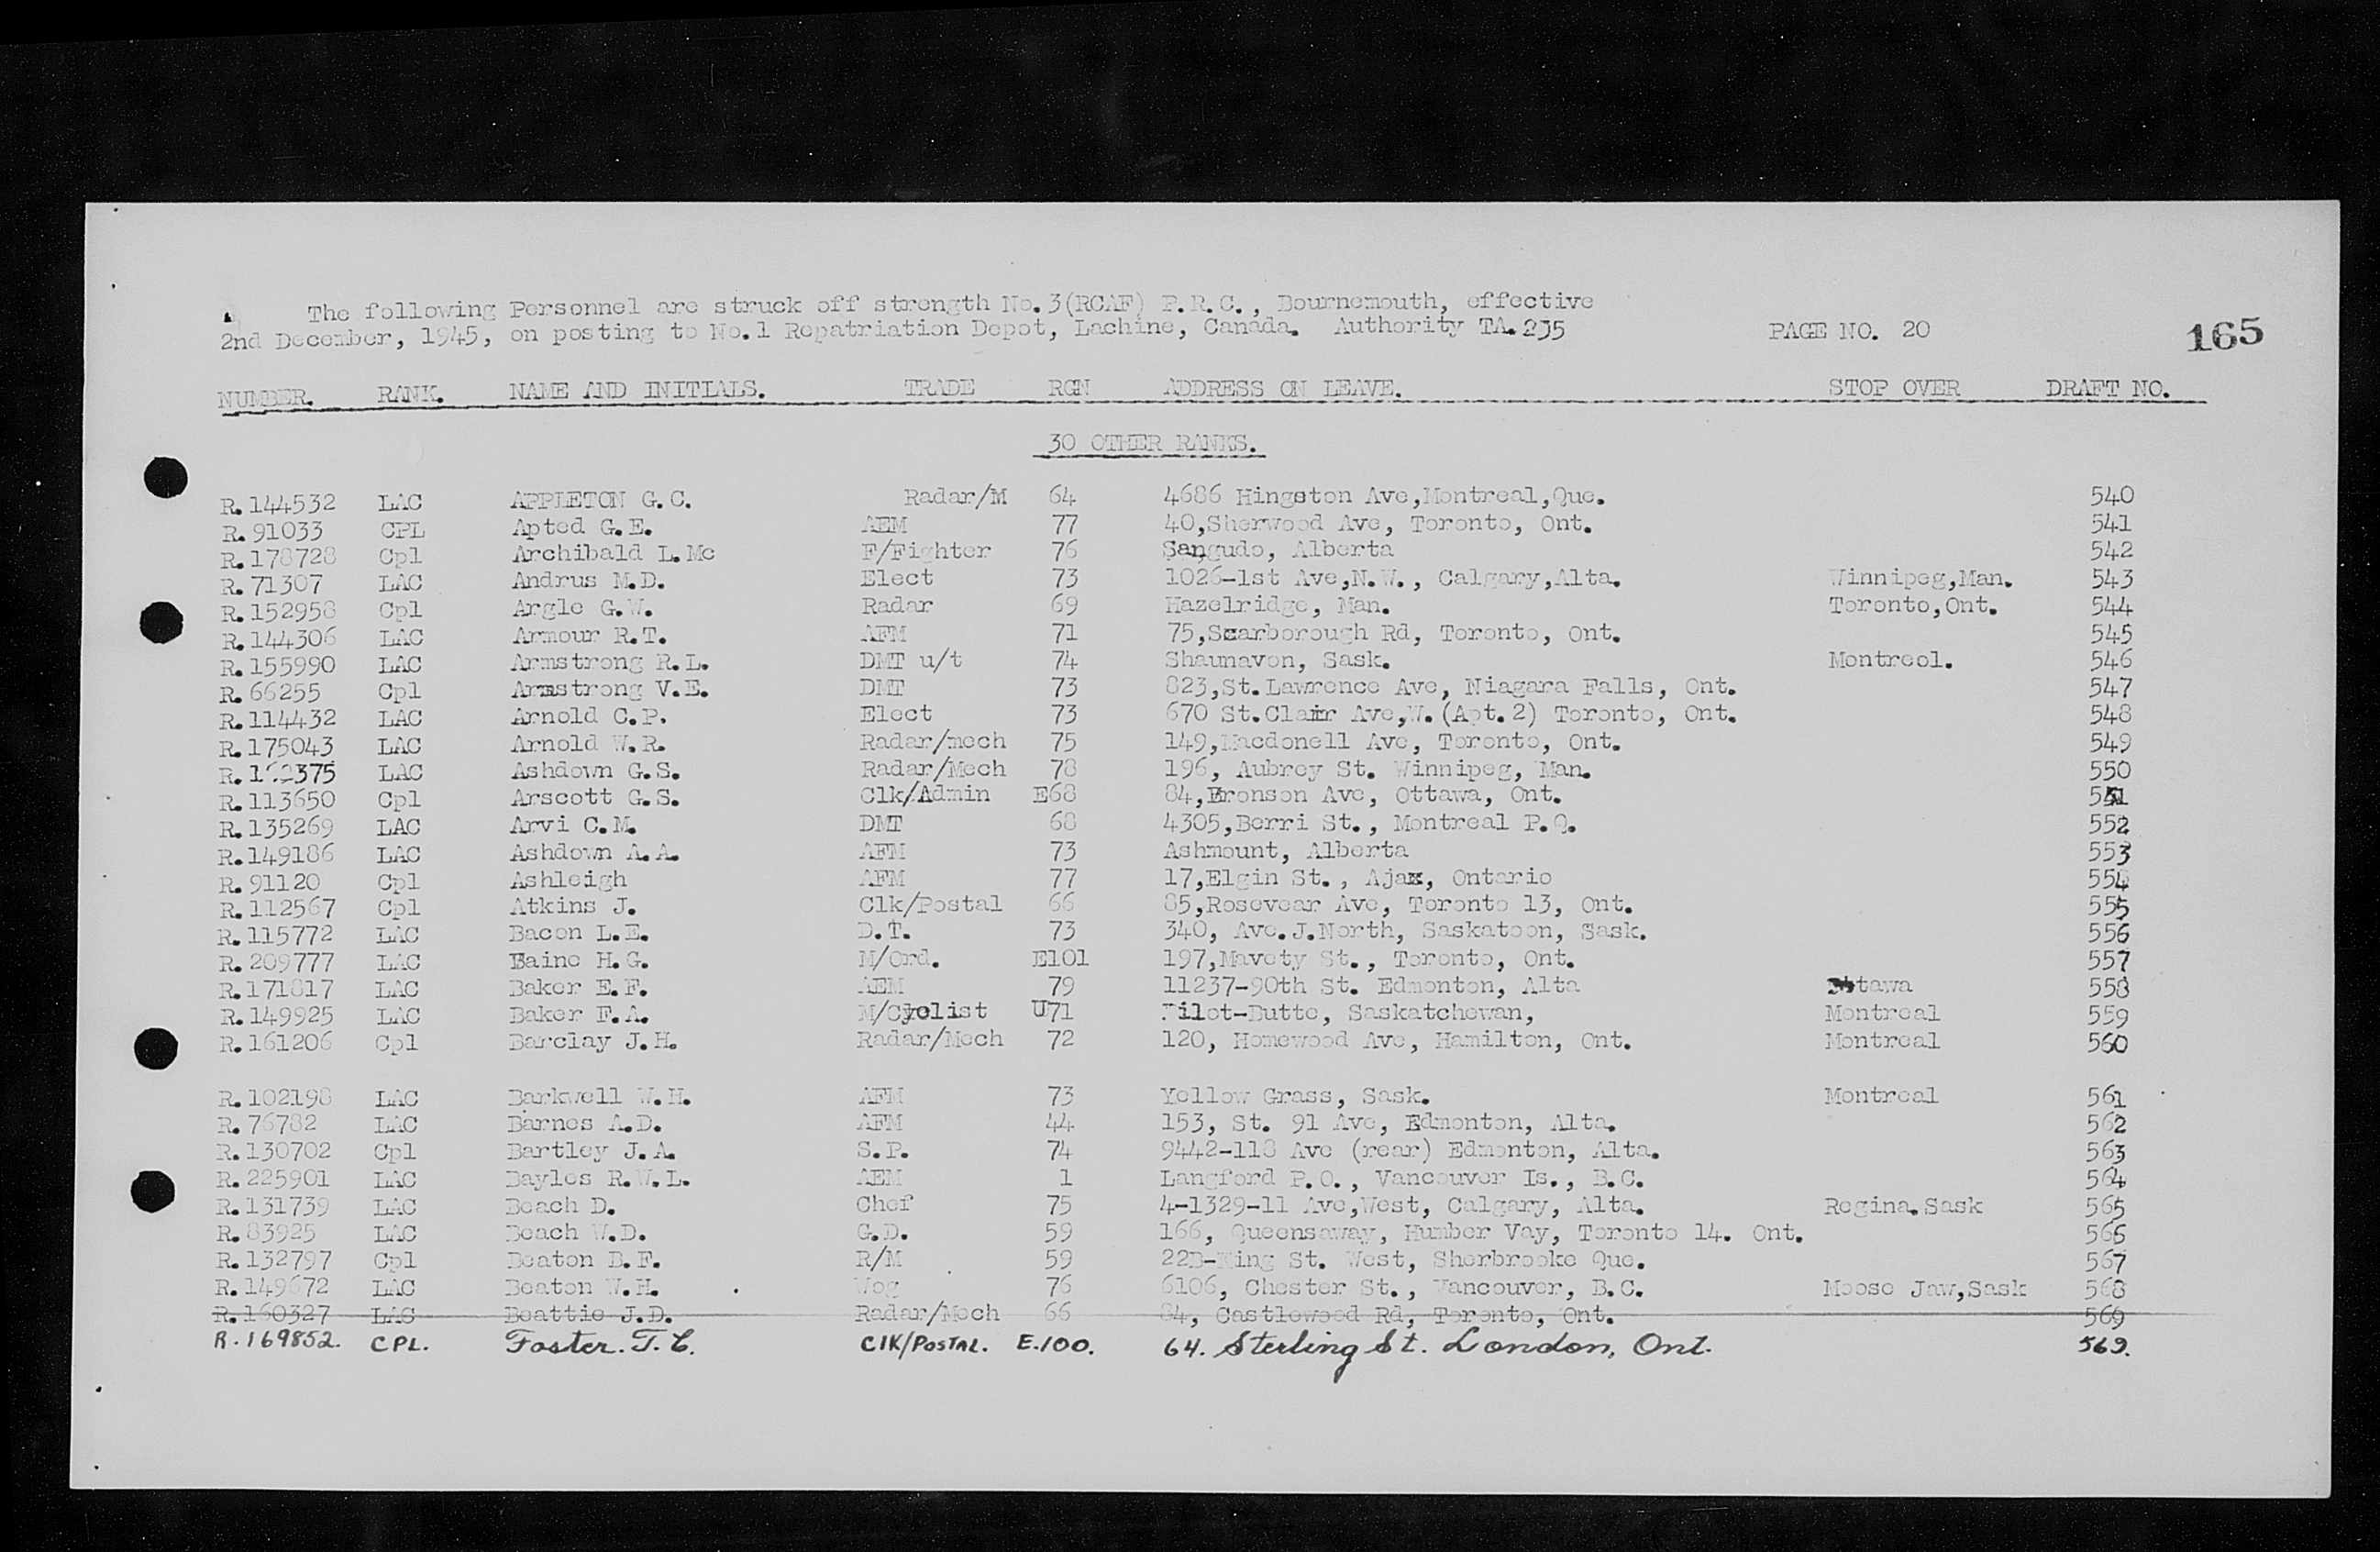 The following Personnel are struck off strength No.3(RCAF) P.R.C., Bournemouth, effective
2nd December, 1945, on posting to No.1 Repatriation Depot, Lachine, Canada. Authority TA.235 PAGE NO. 20 165
NUMBER. RANK. NAME AND INITIALS. TRADE RGN ADDRESS ON LEAVE. STOP OVER DRAFT NO.
30 OTHER RANKS.
R.144532 LAC APPLETON G.C. Radar/M 64 4686 Hingston Ave,Montreal,Que. 540
R.91033 CPL Apted G.E. AEM 77 40,Sherwood Ave, Toronto, Ont. 541
R.178728 Cpl Archibald L.Mc F/Fighter 76 Sangudo, Alberta 542
R.71307 LAC Andrus M.D. Elect 73 1026-1st Ave,N.W., Calgary,Alta. Winnipeg,Man. 543
R.152958 Cpl Argle G.W. Radar 69 Hazelridge, Man. Toronto,Ont. 544
R.144306 LAC Armour R.T. AFM 71 75,Scarborough Rd, Toronto, Ont. 545
R.155990 LAC Armstrong R.L. DMT u/t 74 Shaunavon, Sask. Montreol. 546
R.66255 Cpl Armstrong V.E. DMT 73 823,St.Lawrence Ave, Niagara Falls, Ont. 547
R.114432 LAC Arnold C.P. Elect 73 670 St.Clair Ave,W.(Apt.2) Toronto, Ont. 548
R.175043 LAC Arnold W.R. Radar/mech 75 149,Macdonell Ave, Toronto, Ont. 549
LAC Ashdown G.S. Radar/Mech 78 196, Aubrey St. Winnipeg, Man. 550
R.113650 Cpl Arscott G.S. Clk/Admin E68 84,Bronson Ave, Ottawa, Ont. 551
R.135269 LAC Arvi C.M. DMT 68 4305,Berri St., Montreal P.Q. 552
R.149186 LAC Ashdown A.A. AFM 73 Ashmount, Alberta 553
R.91120 Cpl Ashleigh AFM 77 17,Elgin St., Ajax, Ontario 554
R.112567 Cpl Atkins J. Clk/Postal 66 85,Rosevear Ave, Toronto 13, Ont. 555
R.115772 LAC Bacon L.E. D.T. 73 340, Ave.J.North, Saskatoon, Sask. 556
R.209777 LAC Baine H.G. M/Ord. E101 197,Mavety St., Toronto, Ont. 557
R.171817 LAC Baker E.F. AEM 79 11237-90th St. Edmonton, Alta Ottawa 558
R.149925 LAC Baker F.A. M/Cyclist U71 Pilot-Butte, Saskatchewan, Montreal 559
R.161206 Cpl Barclay J.H. Radar/Mech 72 120, Homewood Ave, Hamilton, Ont. Montreal 560
R.102198 LAC Barkwell W.H. AFM 73 Yellow Grass, Sask. Montreal 561
R.76782 LAC Barnes A.D. AFM 44 153, St. 91 Ave, Edmonton, Alta. 562
R.130702 Cpl Bartley J.A. S.P. 74 9442-118 Ave (rear) Edmonton, Alta. 563
R.225901 LAC Bayles R.W.L. AEM 1 Langford P.O., Vancouver Is., B.C. 564
R.131739 LAC Beach D. Chef 75 4-1329-11 Ave,West, Calgary, Alta. Regina.Sask 565
R.83925 LAC Beach W.D. G.D. 59 166, Queensaway, Humber Vay, Toronto 14. Ont. 566
R.132797 Cpl Beaton B.F. R/M 59 22B-King St. West, Sherbrooke Que. 567
R.149672 LAC Beaton W.H. Wog 76 6106, Chester St., Vancouver, B.C. Moose Jaw,Sask 568
R.160327 LAC Beattie J.D. Radar/Mech 66 84, Castlewood Rd, Toronto, Ont. 569
R.169852. CPL. Foster. T.C. Clk/Postal. E.100. 64. Sterling St. London, Ont. 569.